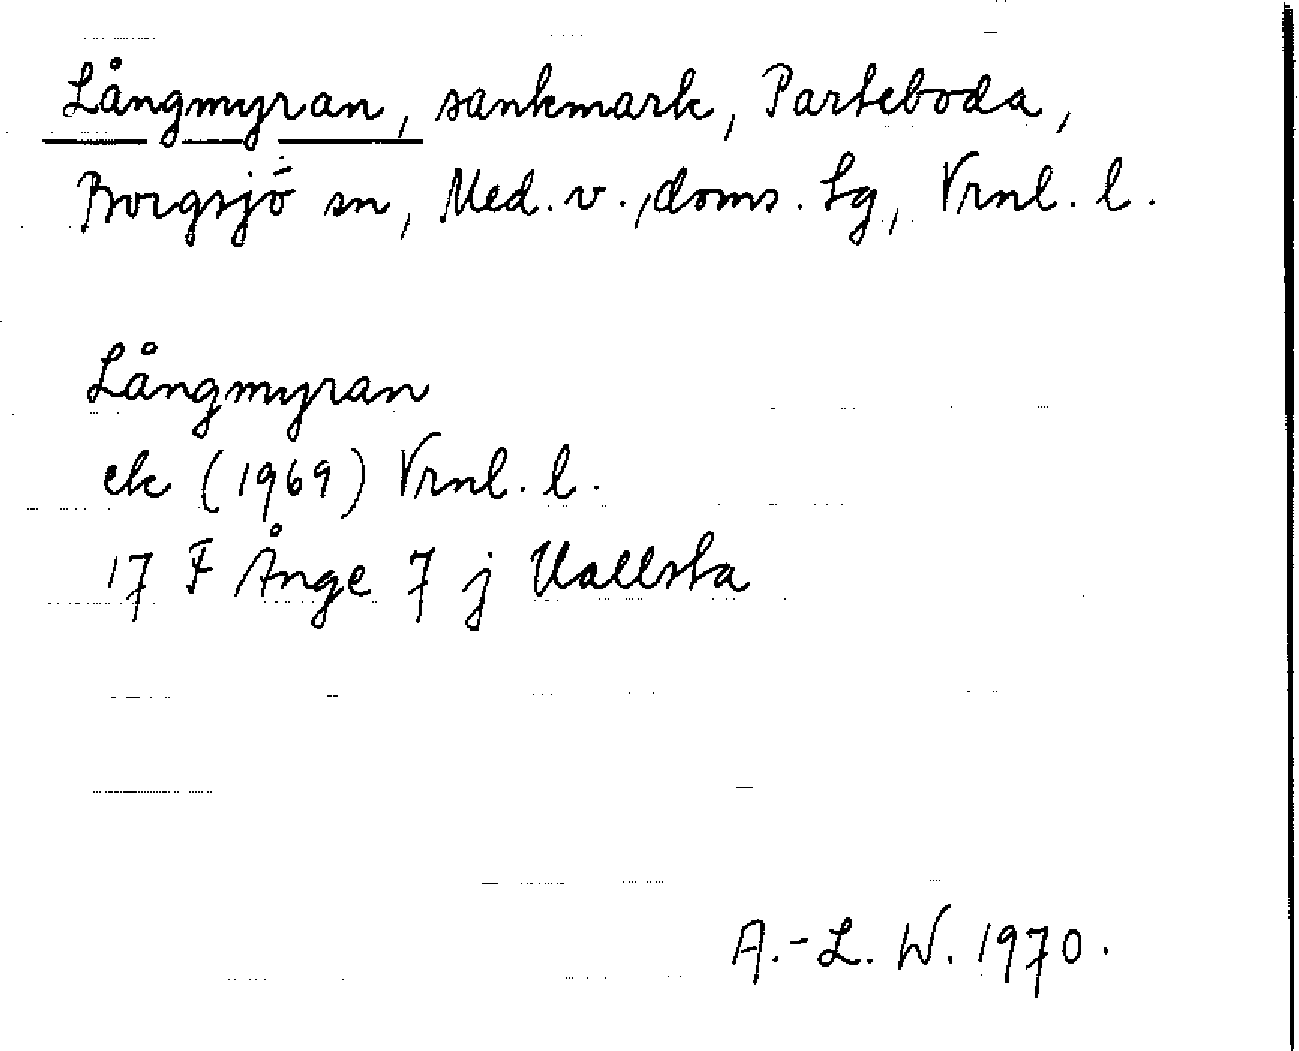 Långmyran, sankmark, Parteboda,
Borgsjö sn, Med. v., doms. hg, Vrnl. l.
Långmyran
ek (1969) Vrnl. l.
17 F Ånge 7 j Vallsta
A.-L. W. 1970.